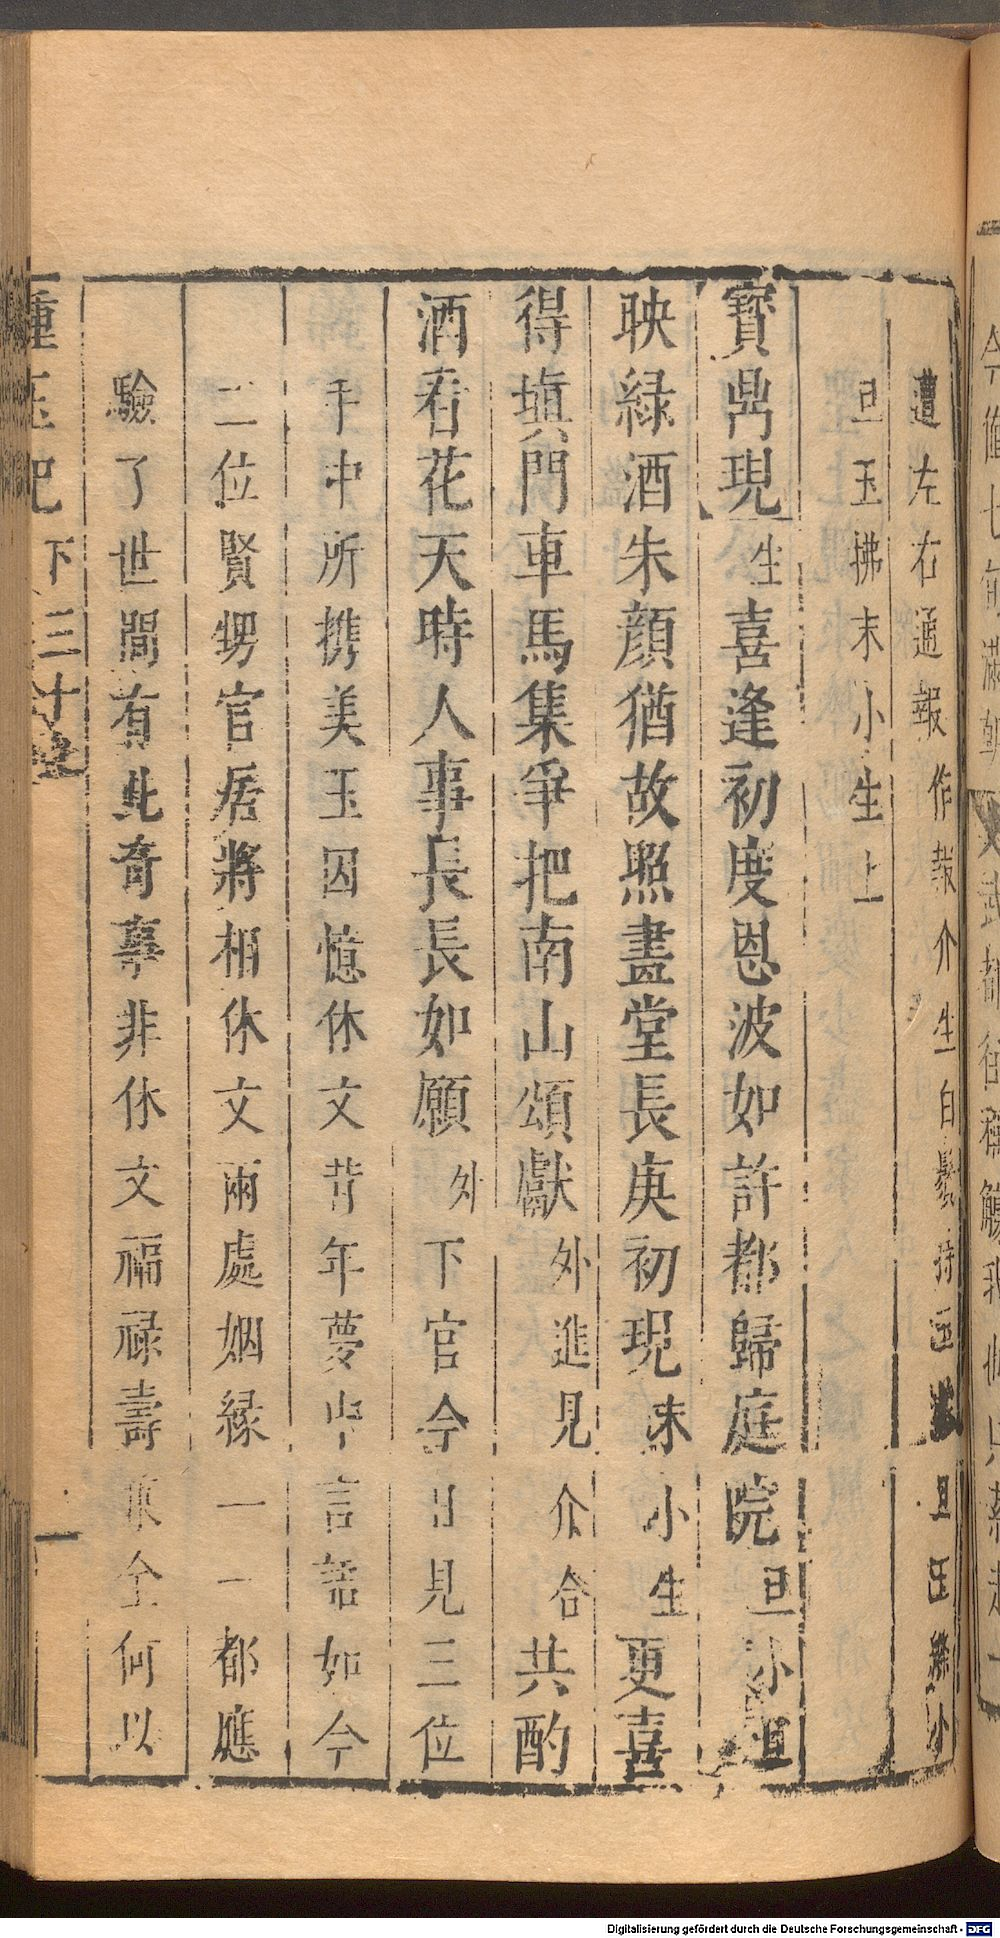 遭左右通報作報介生白鬚持
旦玉
小
旦玉拂末小生上
寳鼎現生喜逢初度恩波如許都歸庭院旦小旦
映緑酒朱顔猶故照畫堂長庚初現末小生更喜
得塡門車馬集爭把南山頌獻外進見介合共酌
酒看花天時人事長長如願外下官今日見三位
手中所携美玉因憶休文昔年夢中言語如今
二位賢甥官居將相休文兩處姻緣一一都應
驗了世間有此奇事非休文福祿壽全何以
種玉記下三十
Digitalisierung gefördert durch die Deutsche Forschungsgemeinschaft - DFG